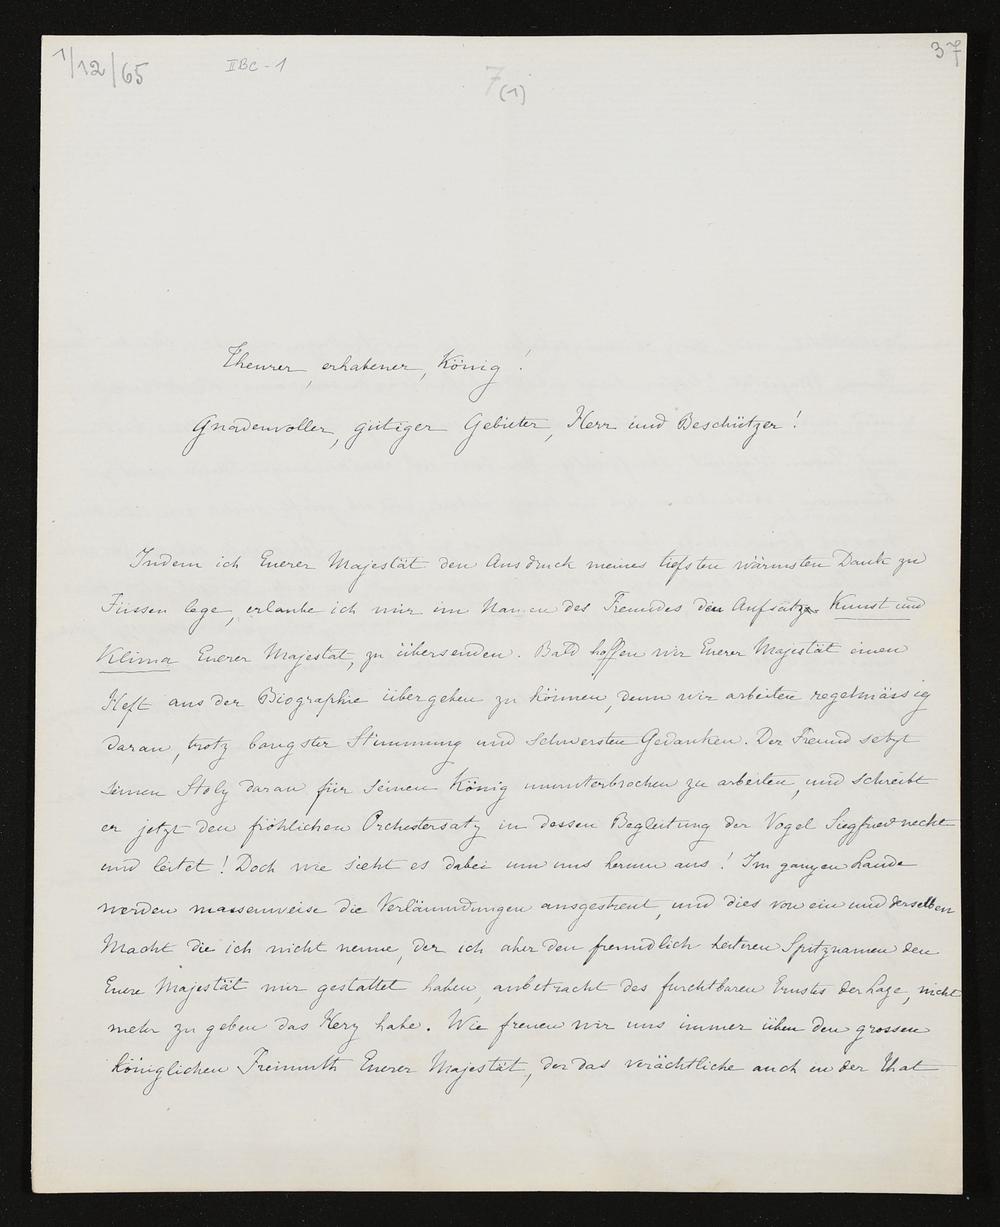 1/12/65
IIBC-1
7(1)
37
Theurer, erhabener, König!
Gnadenvoller, gütiger Gebieter, Herr und Beschützer!
Indem ich Euerer Majestät den Ausdruck meines tiefsten wärmsten Dank zu
Füssen lege, erlaube ich mir im Namen des Freundes den Aufsatz Kunst und
Klima Euerer Majestät, zu übersenden. Bald hoffen wir Euerer Majestät einen
Heft aus der Biographie übergeben zu können, denn wir arbeiten regelmässig
daran, trotz bangster Stimmung und schwersten Gedanken. Der Freund setzt
seinen Stolz daran für seinen König ununterbrochen zu arbeiten, und schreibt
er jetzt den fröhlichen Orchestersatz in dessen Begleitung der Vogel Siegfried neckt
und leitet! Doch wie sieht es dabei um uns herum aus! Im ganzen Lande
werden massenweise die Verläumdungen ausgestreut, und dies von ein und derselben
Macht die ich nicht nenne, der ich aber den freundlich heiteren Spitznamen den
Euere Majestät mir gestattet haben, anbetracht des furchtbaren Ernstes der Lage, nicht
mehr zu geben das Herz habe. Wie freuen wir uns immer über den grossen
königlichen Freimuth Euerer Majestät, der das verächtliche auch in der That